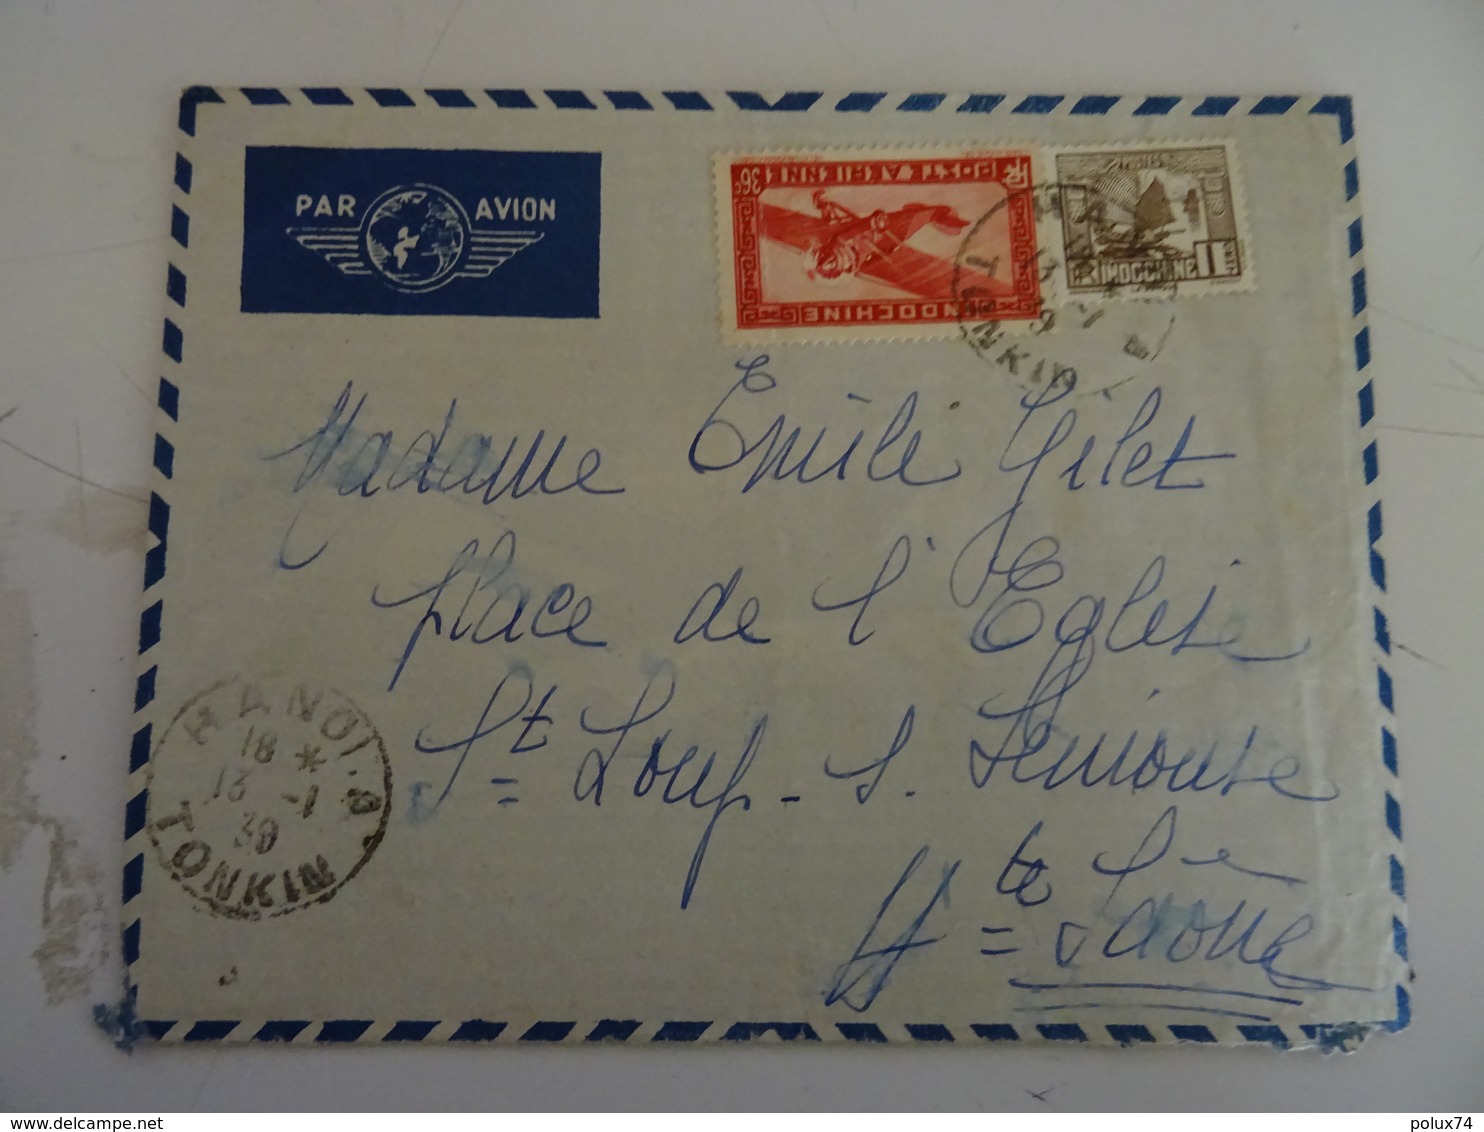 PAR AVION
36c POSTE AERIENNE RF
INDOCHINE
POSTES
INDOCHINE
HANOI
TONKIN
Madame Emile Gilet
Place de l'Eglise
St Loup - s. Semouse
Hte Saône
HANOI-A
18 *
13 -1
39
TONKIN
delcampe.net
polux74